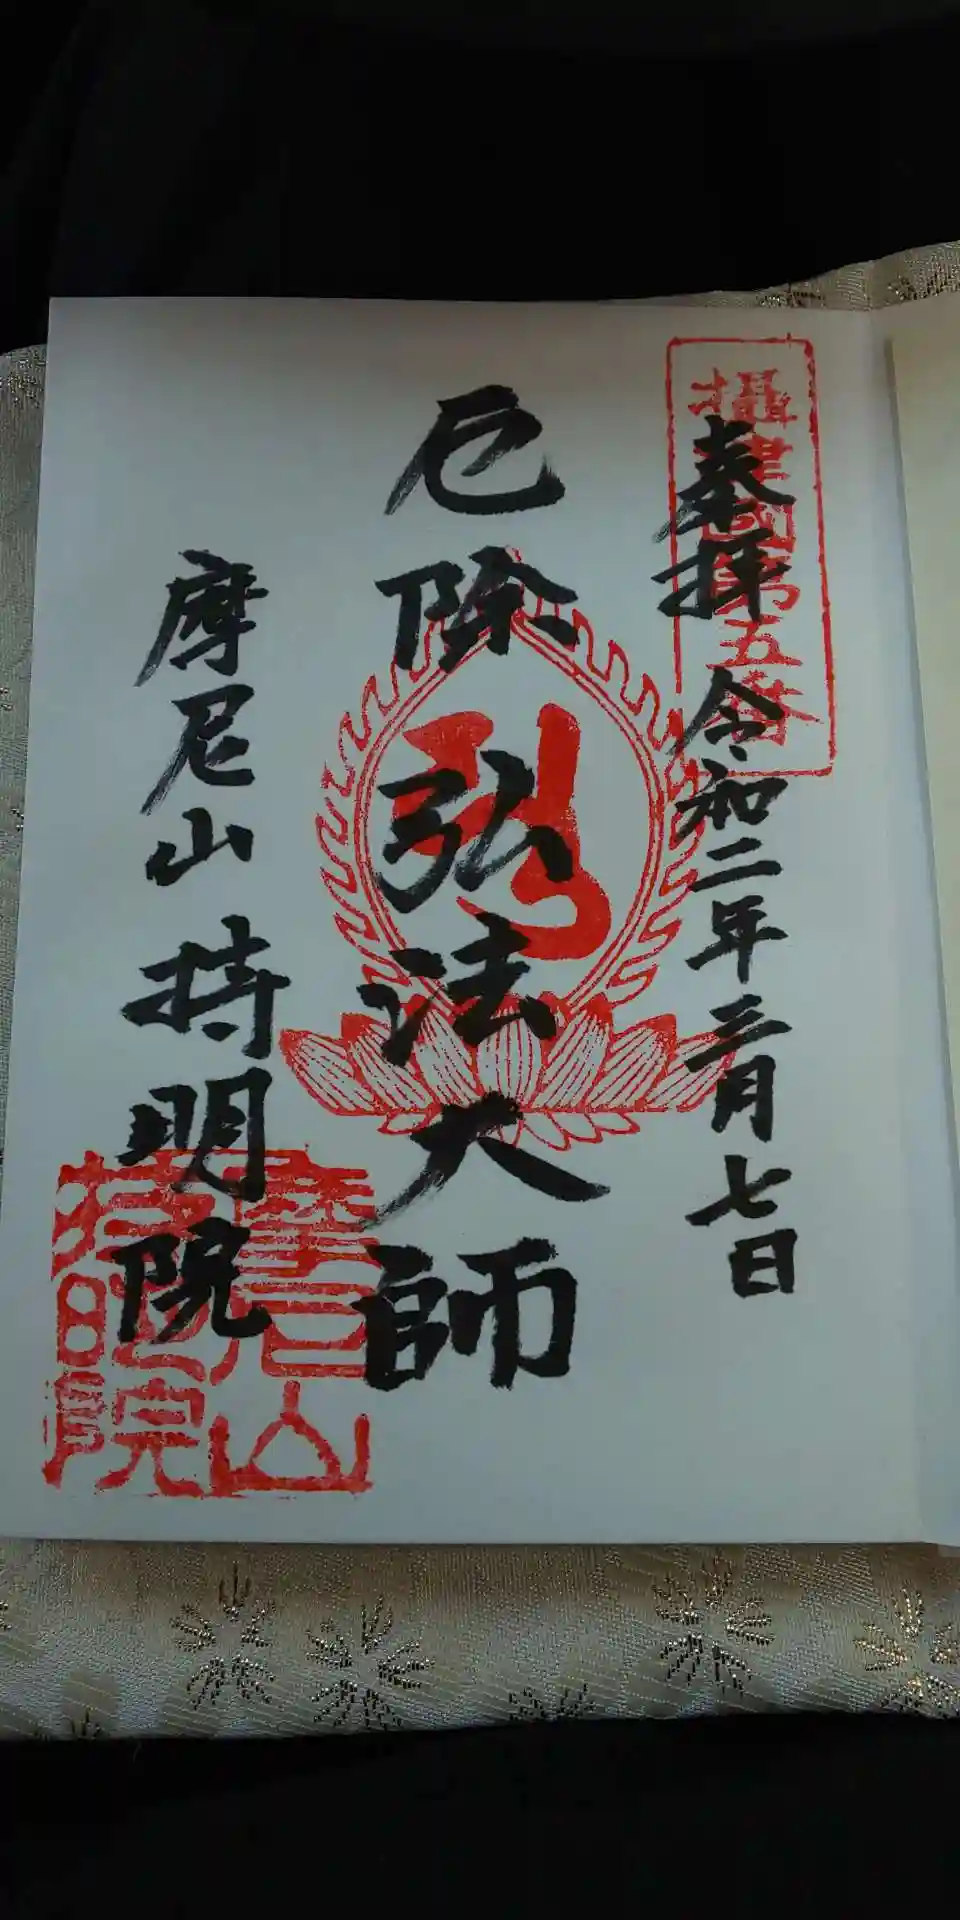 攝津國第五番
奉拝 令和二年三月七日
厄除弘法大師
摩尼山 持明院
摩尼山
持明院